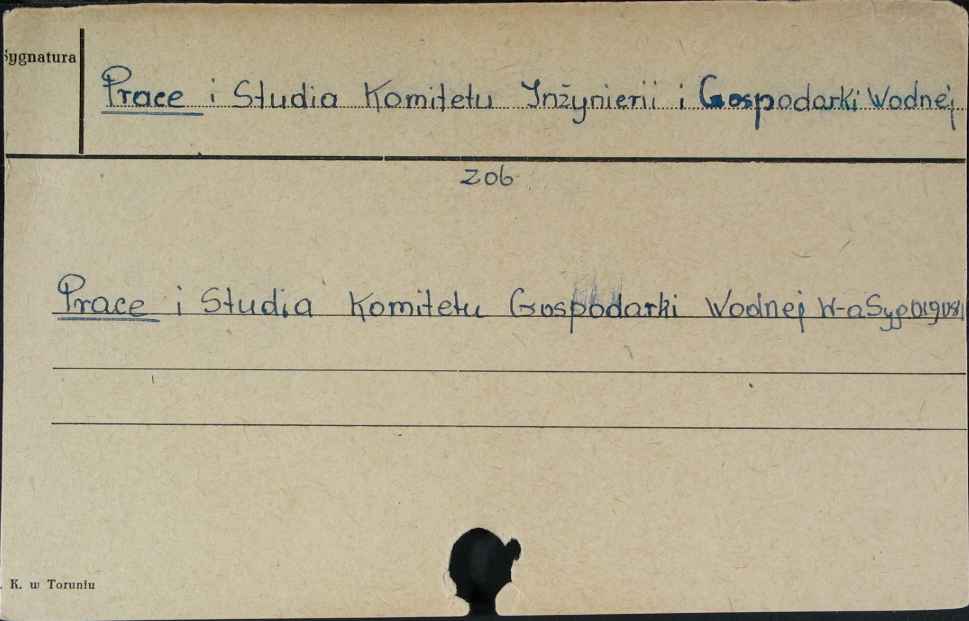 Sygnatura
Prace i Studia Komitetu Inżynierii i Gospodarki Wodnej
zob.
Prace i Studia Komitetu Gospodarki Wodnej W-a Syg 019081
K. w Toruniu